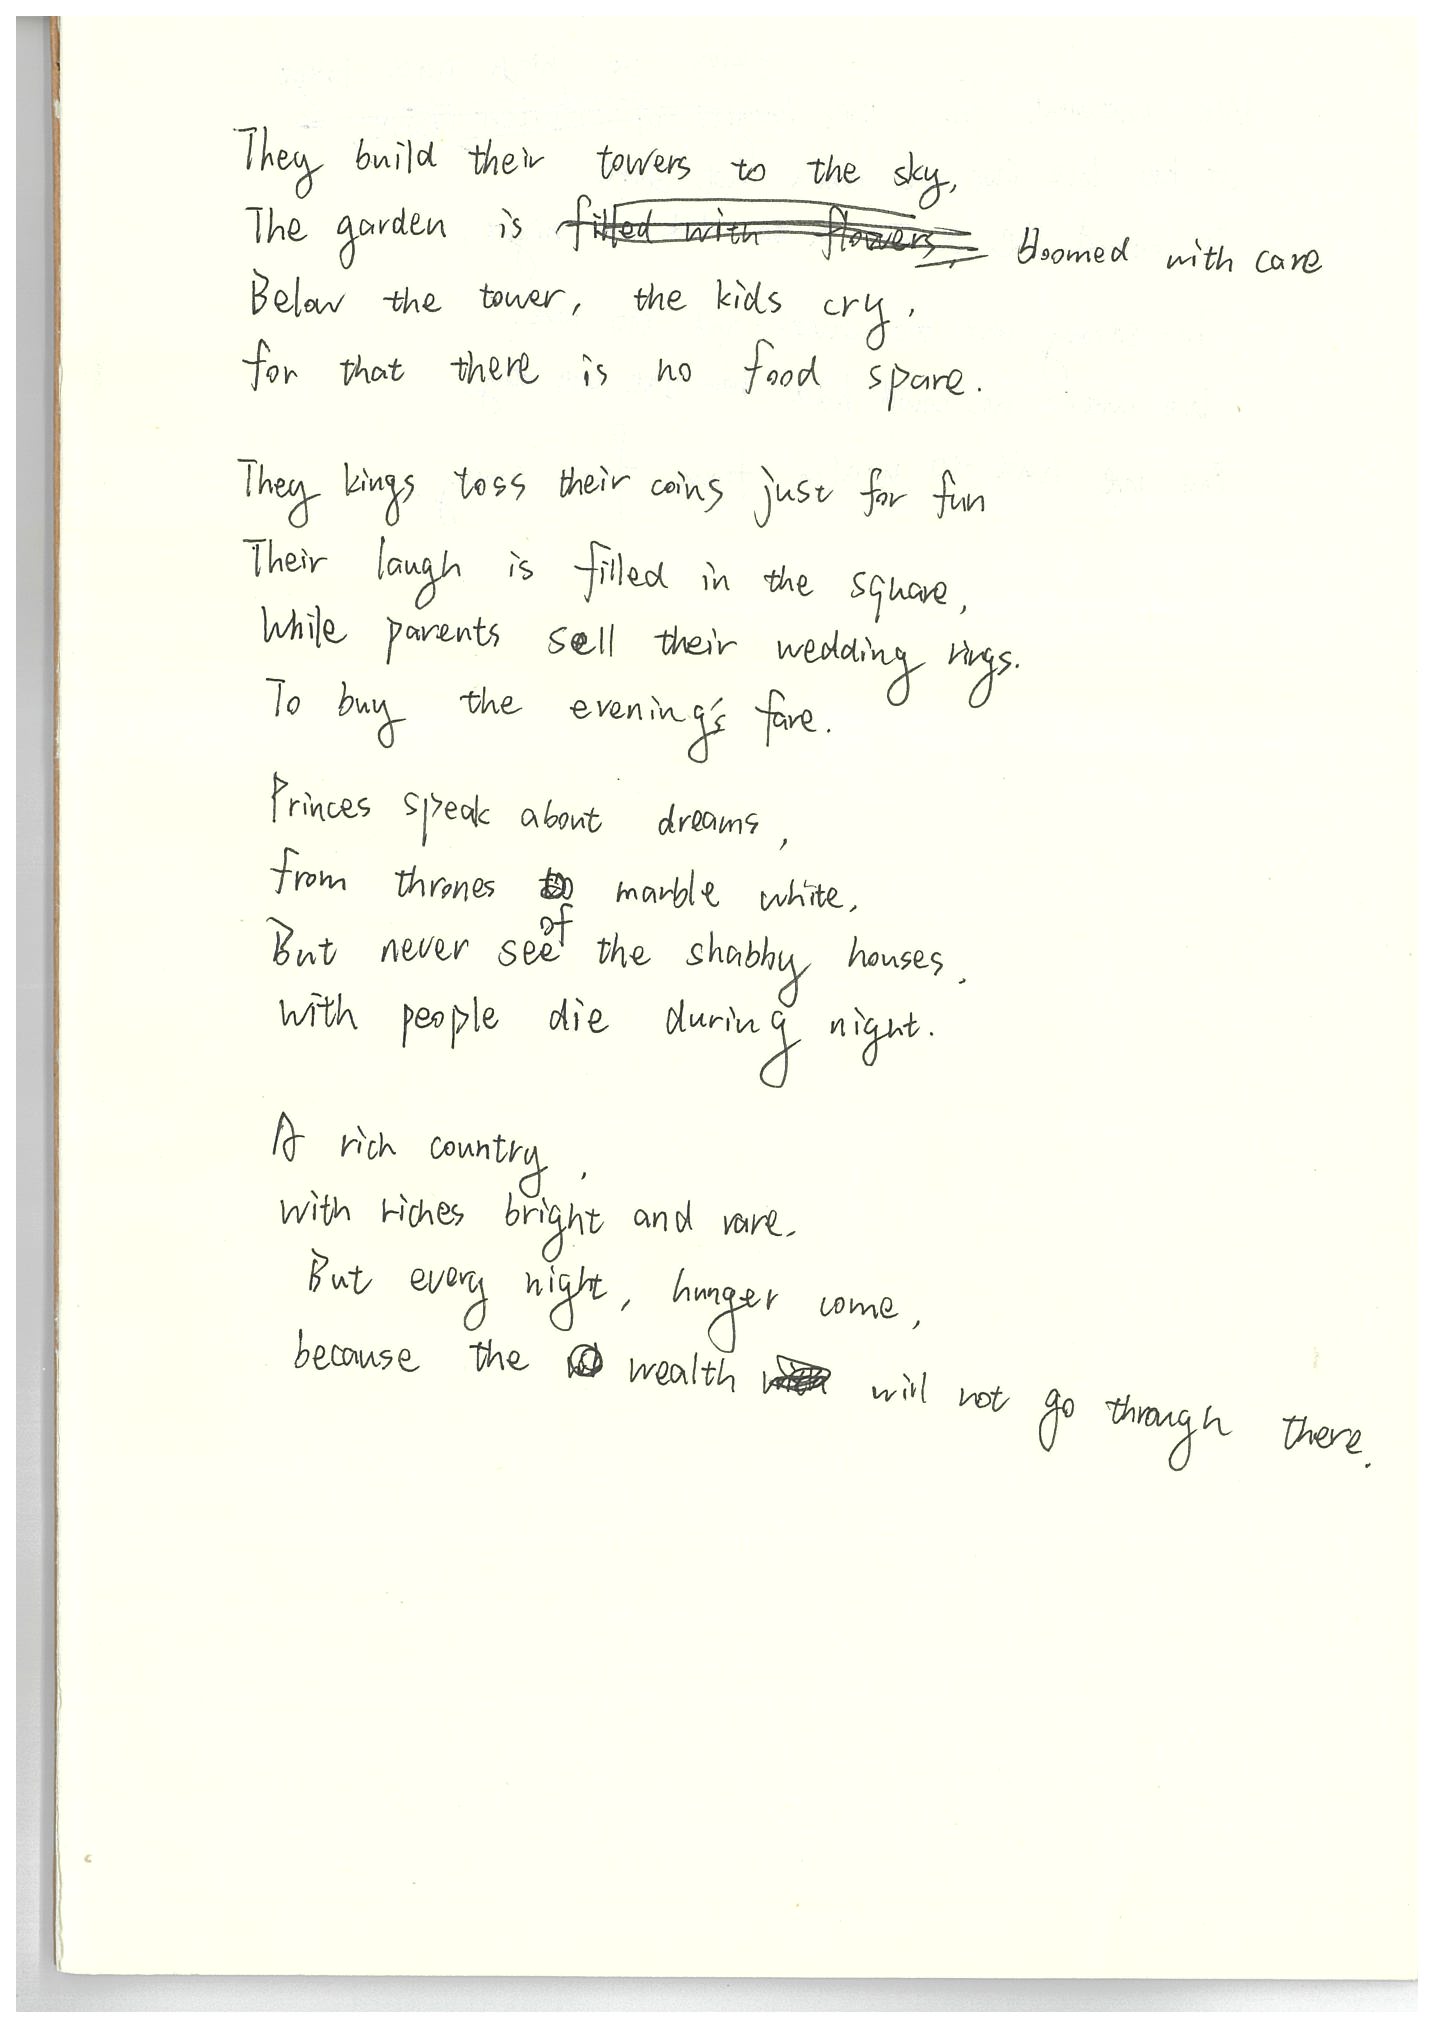 They build their towers to the sky,
The garden is filled with flowers, bloomed with care
Below the tower, the kids cry,
for that there is no food spare.
They kings toss their coins just for fun
Their laugh is filled in the square,
While parents sell their wedding rings.
To buy the evening's fare.
Princes speak about dreams,
from thrones of marble white,
But never see the shabby houses,
with people die during night.
A rich country,
with riches bright and rare.
But every night, hunger come,
because the wealth will not go through there.